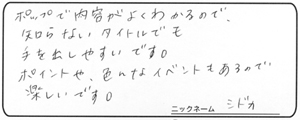 ポップで内容がよくわかるので、
知らないタイトルでも
手を出しやすいです。
ポイントや、色んなイベントもあるので
楽しいです。
ニックネーム シドカ